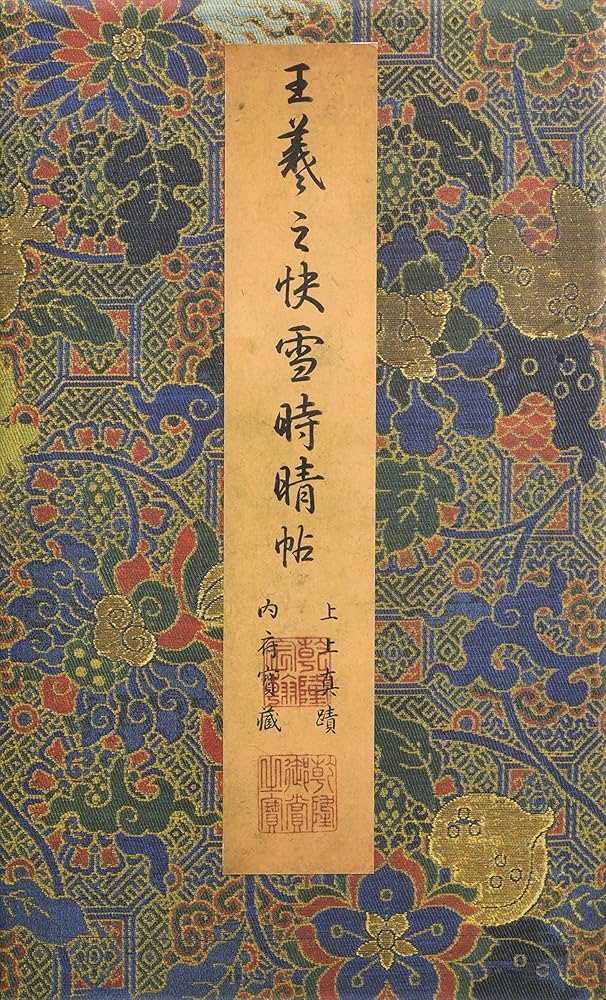 王羲之快雪時晴帖
上上真蹟
內府寶藏
乾隆宸翰
乾隆御賞之寶